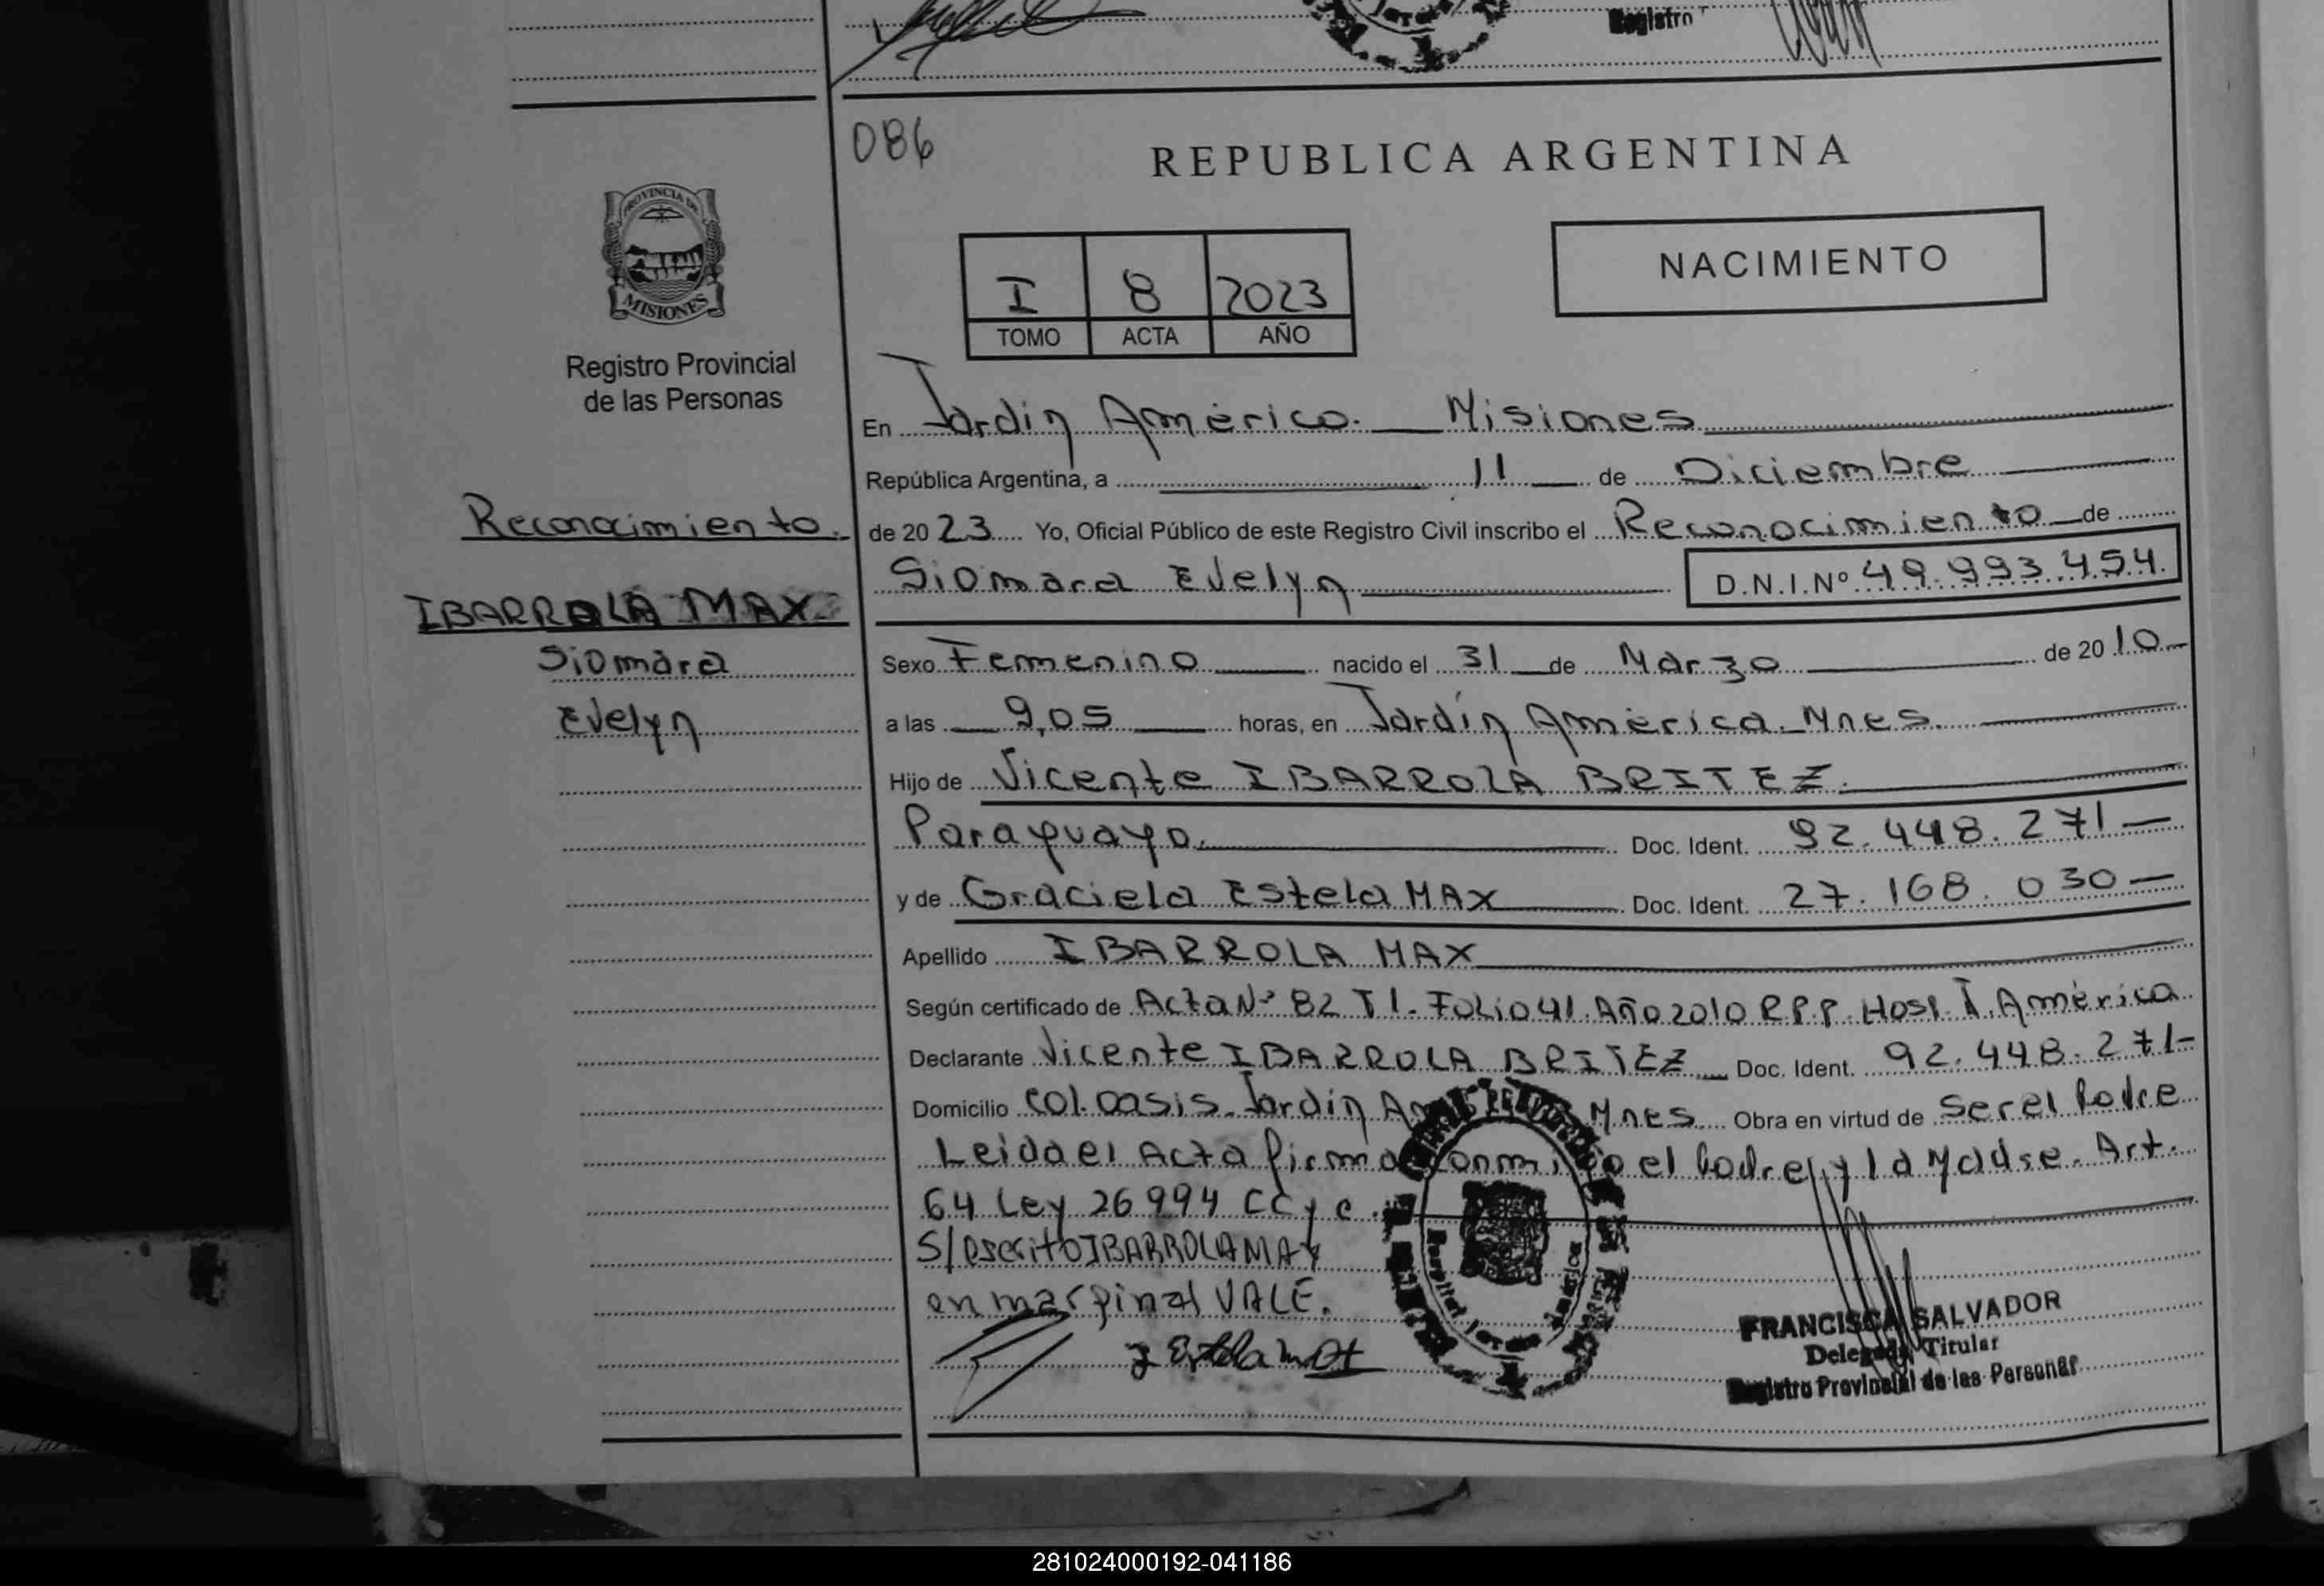 Registro
086
REPUBLICA ARGENTINA
PROVINCIA DE
MISIONES
Registro Provincial
de las Personas
I 8 2023
TOMO ACTA AÑO
NACIMIENTO
En Jardín América. Misiones
República Argentina, a 11 de Diciembre
Reconocimiento.
de 2023 Yo, Oficial Público de este Registro Civil inscribo el Reconocimiento de
Siomara Evelyn D.N.I.Nº 49.993.454.
IBARROLA MAX
Siomara
Evelyn
Sexo Femenino nacido el 31 de Marzo de 2010
a las 9,05 horas, en Jardín América. Mnes.
Hijo de Vicente IBARROLA BRITEZ.
Paraguayo. Doc. Ident. 92.448.271
y de Graciela Estela MAX Doc. Ident. 27.168.030
Apellido IBARROLA MAX
Según certificado de Acta Nº 82 T1. Folio 41. Año 2010 R.P.P. Hosp. J. América
Declarante Vicente IBARROLA BRITEZ Doc. Ident. 92.448.271
Domicilio Col. Oasis. Jardín Mnes. Obra en virtud de Ser el Padre
Leida el Acta firma el Padre y la Madre. Art.
64 Ley 26994 CC y C.
S/escrito IBARROLA MAX
en marginal VALE.
FRANCISCA SALVADOR
Delegada Titular
Registro Provincial de las Personas
281024000192-041186